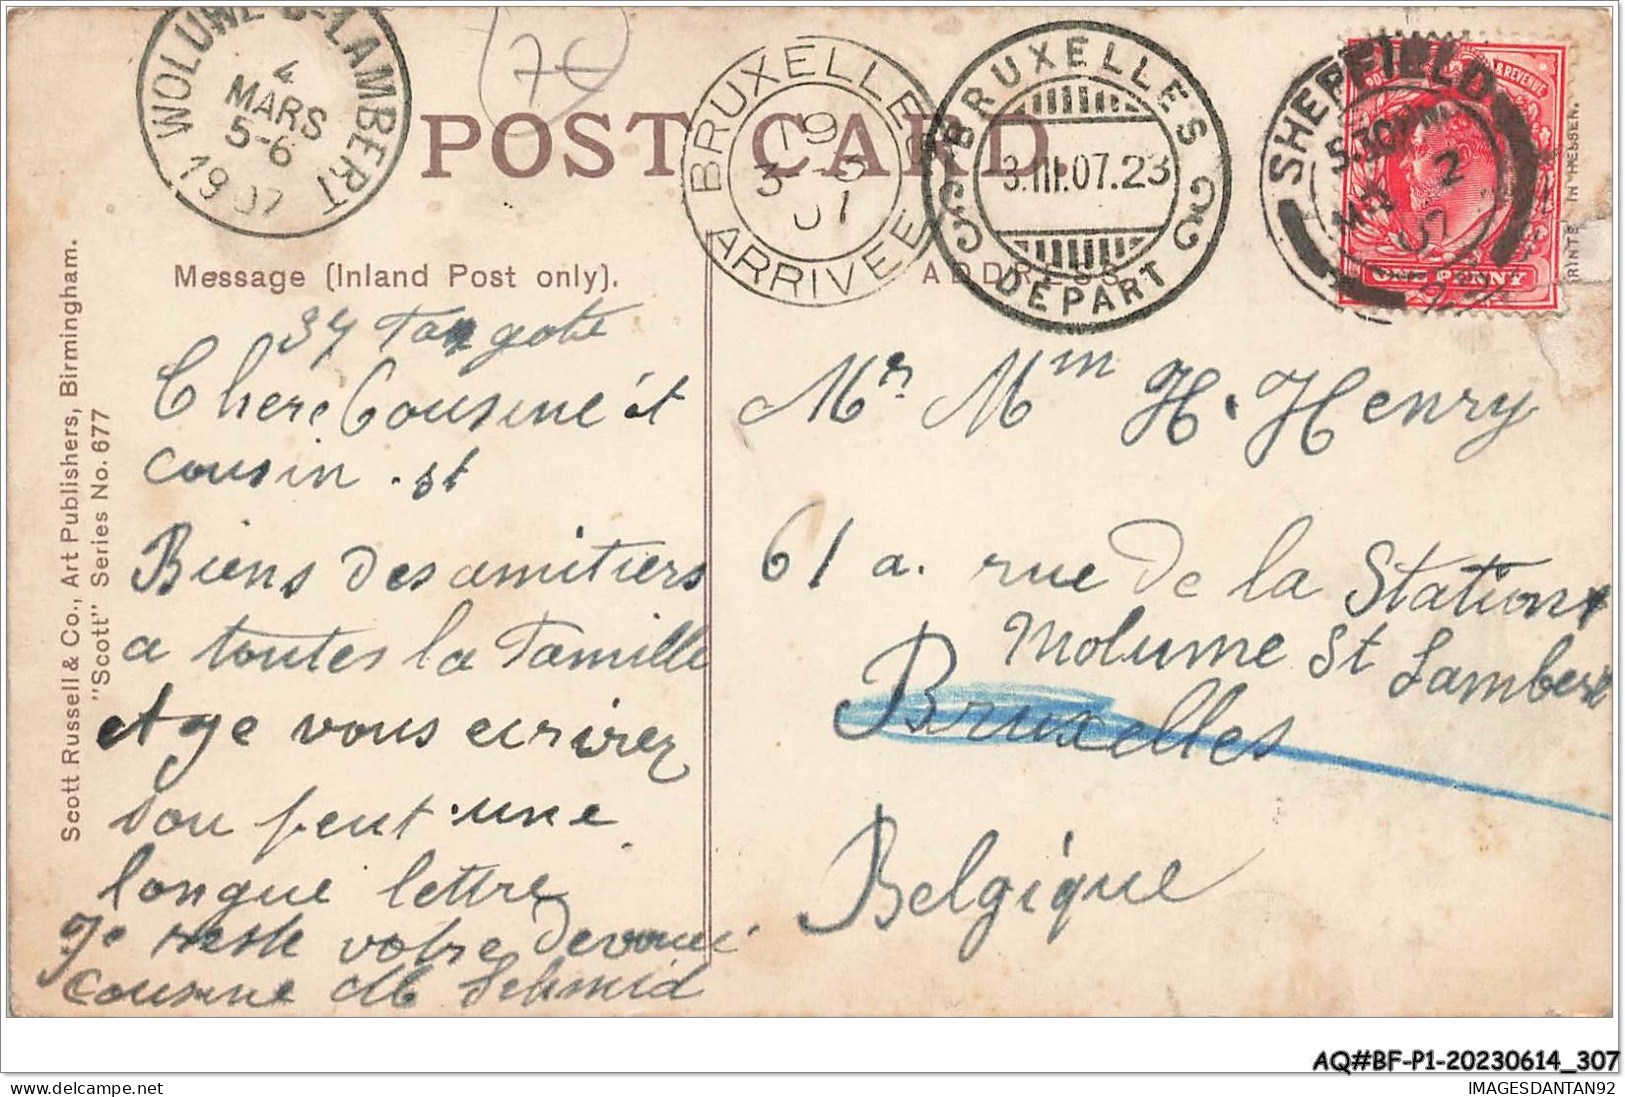 WOLUWE-S-LAMBERT
4
MARS
5-6
1907
POST CARD
BRUXELLES
19
3-3
07
ARRIVEE
BRUXELLES
3.III.07.23
DÉPART
SHEFFIELD
5.30PM
MR 2
07
& REVENUE
ONE PENNY
Message (Inland Post only).
ADDRESS
Scott Russell & Co., Art Publishers, Birmingham.
"Scott" Series No. 677
37
Chere Cousine et
cousin. st
Biens des amitiers
a toutes la Famille
et ge vous ecrirez
sou peut une
longue lettre
Je reste votre Devouee
cousine Schmid
Mr. Mm H. Henry
61 a. rue De la Station
Molume St Lambert
Bruxelles
Belgique
AQ#BF-P1-20230614_307
IMAGESDANTAN92